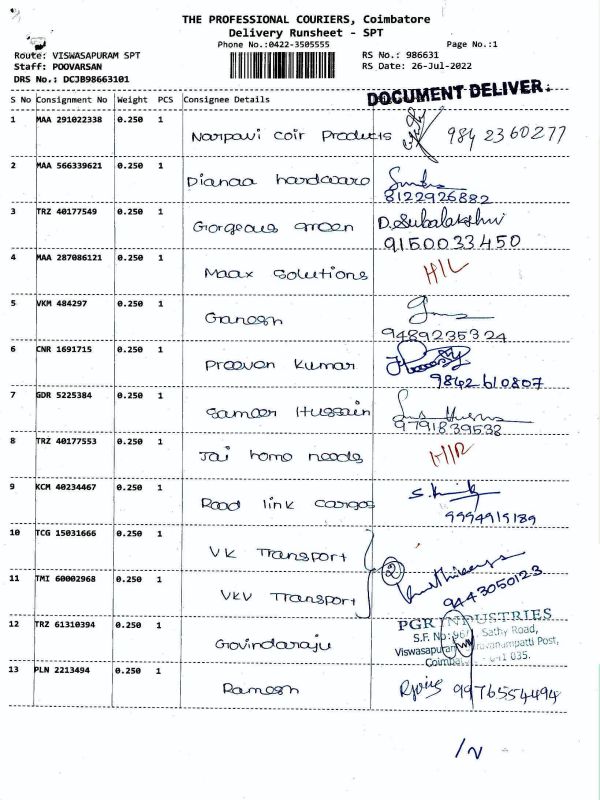 THE PROFESSIONAL COURIERS, Coimbatore
Delivery Runsheet - SPT
Phone No.:0422-3505555
Page No.:1
Route: VISWASAPURAM SPT
RS No.: 986631
Staff: POOVARSAN
RS Date: 26-Jul-2022
DRS No.: DCJB98663101
DOCUMENT DELIVER.
S No Consignment No Weight PCS Consignee Details
1 MAA 291022338 0.250 1
Narpavi coir Products 9842360277
2 MAA 566339621 0.250 1
Dianaa hardware
8122926882
3 TRZ 40177549 0.250 1
Gorgeous green D. Subalakshmi
9150033450
4 MAA 287086121 0.250 1
Maax Solutions H/L
5 VKM 484297 0.250 1
Ganesh
9489235324
6 CNR 1691715 0.250 1
Praveen Kumar
9842610807
7 GDR 5225384 0.250 1
Sameer Hussain
9791839538
8 TRZ 40177553 0.250 1
Jai home needs
9 KCM 40234467 0.250 1
Road link cargos
9994919189
10 TCG 15031666 0.250 1
VK Transport
2
11 TMI 60002968 0.250 1
VKV Transport
9443050123
12 TRZ 61310394 0.250 1
PGR INDUSTRIES
S.F. No: Sathy Road,
Govindaraju
13 PLN 2213494 0.250 1
Ramesh 9976554494